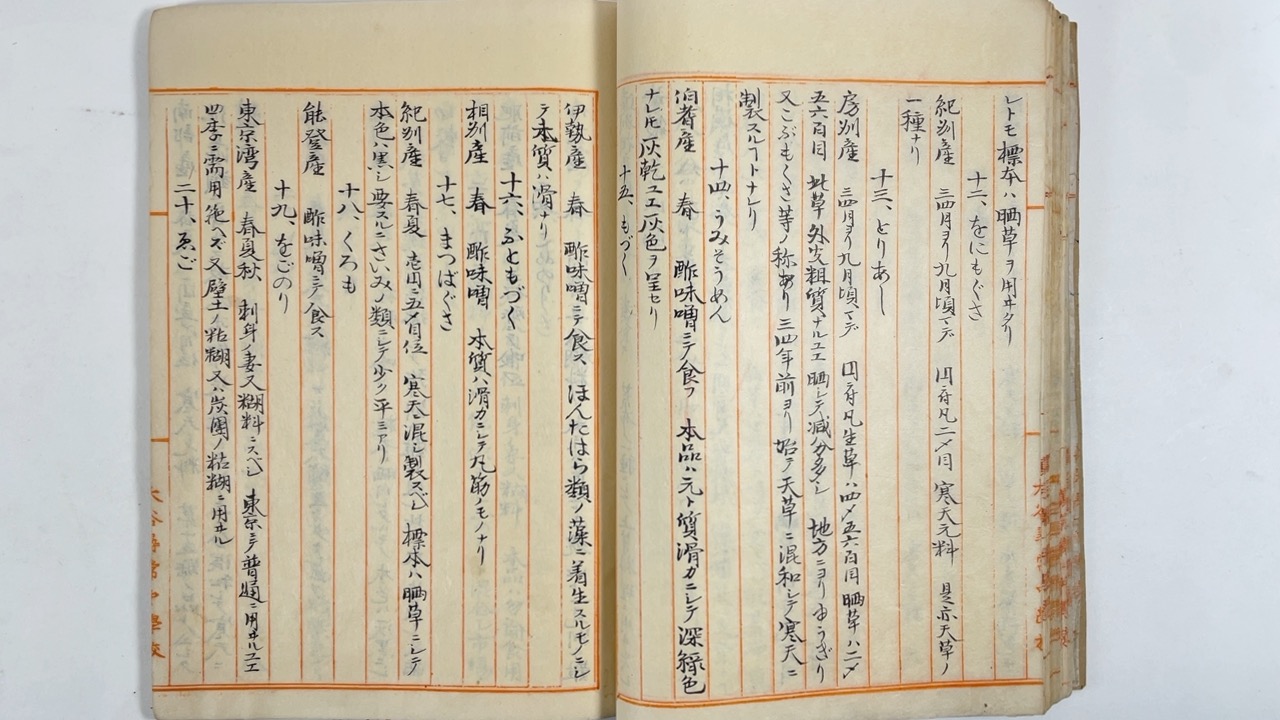 レトモ標本ハ晒草ヲ用ヰタリ
十二、をにもぐさ
紀州産 三四月ヨリ九月頃マデ 円ニ付凡二〆目 寒天元料 是亦天草ノ
一種ナリ
十三、とりあし
房州産 三四月ヨリ九月頃マデ 円ニ付凡生草ハ四〆五六百目晒草ハ二〆
五六百目 此草外皮粗質ナルユエ晒シテ減分多シ 地方ニヨリゆうぎり
又こぶもくさ等ノ称あり三四年前ヨリ始テ天草ニ混和シテ寒天ニ
製スルコトナレリ
十四、うみそうめん
伯耆産 春 酢味噌ニテ食フ 本品ハ元ト質滑カニシテ深緑色
ナレモ灰乾ユエ灰色ヲ呈セリ
十五、もづく
伊勢産 春 酢味噌ニテ食ス ほんたはら類ノ藻ニ着生スルモノニシ
テ本質ハ滑ナリ
十六、ふともづく
相州産 春 酢味噌 本質ハ滑カニシテ丸筋ノモノナリ
十七、まつばぐさ
紀州産 春夏 壱円ニ五〆目位 寒天混シ製スベシ 標本ハ晒草ニシテ
本色ハ黒シ要スルニさいみノ類ニシテ少ク平ミアリ
十八、くろも
能登産 酢味噌ニテ食ス
十九、をごのり
東京湾産 春夏秋 刺身ノ妻又糊料ニスベシ 東京ニテ普通ニ用ヰルユエ
四季ニ需用絶ヘズ又壁土ノ粘糊又ハ炭團ノ粘糊ニ用ヰル
二十、ゑご
中學校